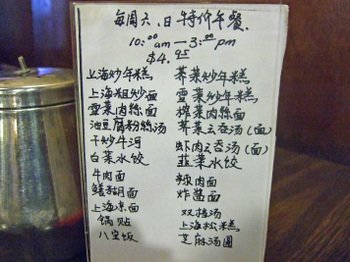 每周六、日特价午餐
10:00am — 3:00pm
$4.95
上海炒年糕
上海粗炒面
雪菜肉絲面
油豆腐粉絲汤
干炒牛河
白菜水饺
牛肉面
鳝糊面
上海凉面
锅贴
八宝饭
荠菜炒年糕
雪菜炒年糕
榨菜肉絲面
荠菜云吞汤(面)
虾肉云吞汤(面)
韮菜水饺
辣肉面
炸酱面
双档汤
上海松糕
芝麻汤圆